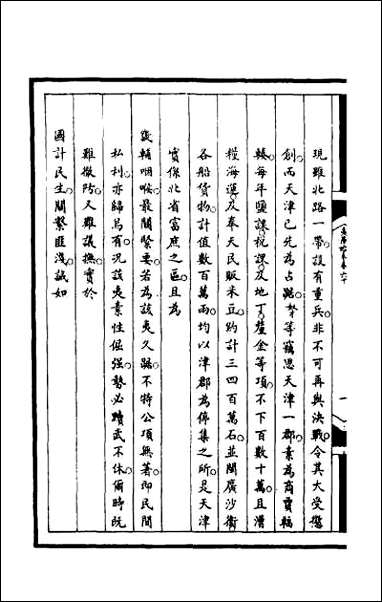 現雖北路一帶設有重兵非不可再與決戰令其大受懲
創而天津已先為占踞等竊思天津一郡素為商賈輻
輳每年鹽課稅課及地丁釐金等項不下百數十萬且漕
糧海運及奉天民販米豆約計三四百萬石並閩廣沙衛
各船貨物計值數百萬兩均以津郡為俸集之所是天津
實係北省富庶之區且為
畿輔咽喉最關緊要若為該夷久踞不特公項無著即民間
私利亦歸烏有況該夷素性倔强勢必黷武不休爾時既
難撤防又難議撫實於
國計民生關繫匪淺誠如